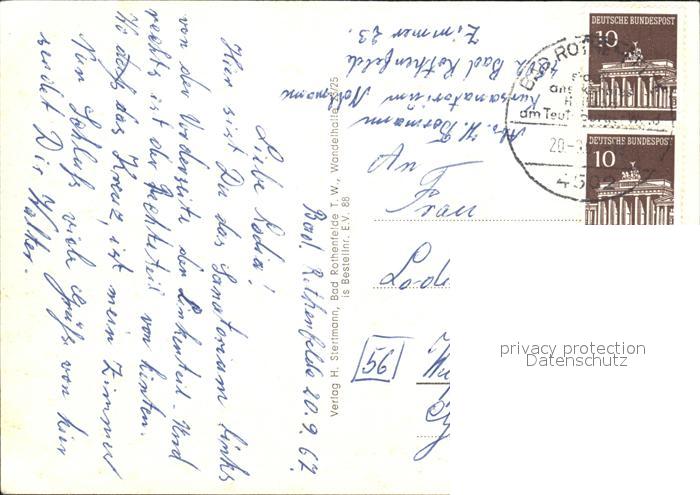 Bad Rothenfelde 20.9.67
Liebe Lodia!
Hier siest Du das Sanatorium links
von der Vorderseite den Linkenteil. Und
rechts ist der Rechteteil von hinten.
Wo auf das Kreuz, ist mein Zimmer
Nun Schluß viele Grüße von hier
sendet Dir Walter.
Verlag H. Stertmann, Bad Rothenfelde T. W., Wandelhalle
is Bestellnr. E.V. 88
Abs. W. Bormann
Kursanatorium
4502 Bad Rothenfelde
Zimmer 23.
An
Frau
56
DEUTSCHE BUNDESPOST
10
DEUTSCHE BUNDESPOST
10
BAD ROTHENFELDE
am Teut
20.-
4502
privacy protection
Datenschutz